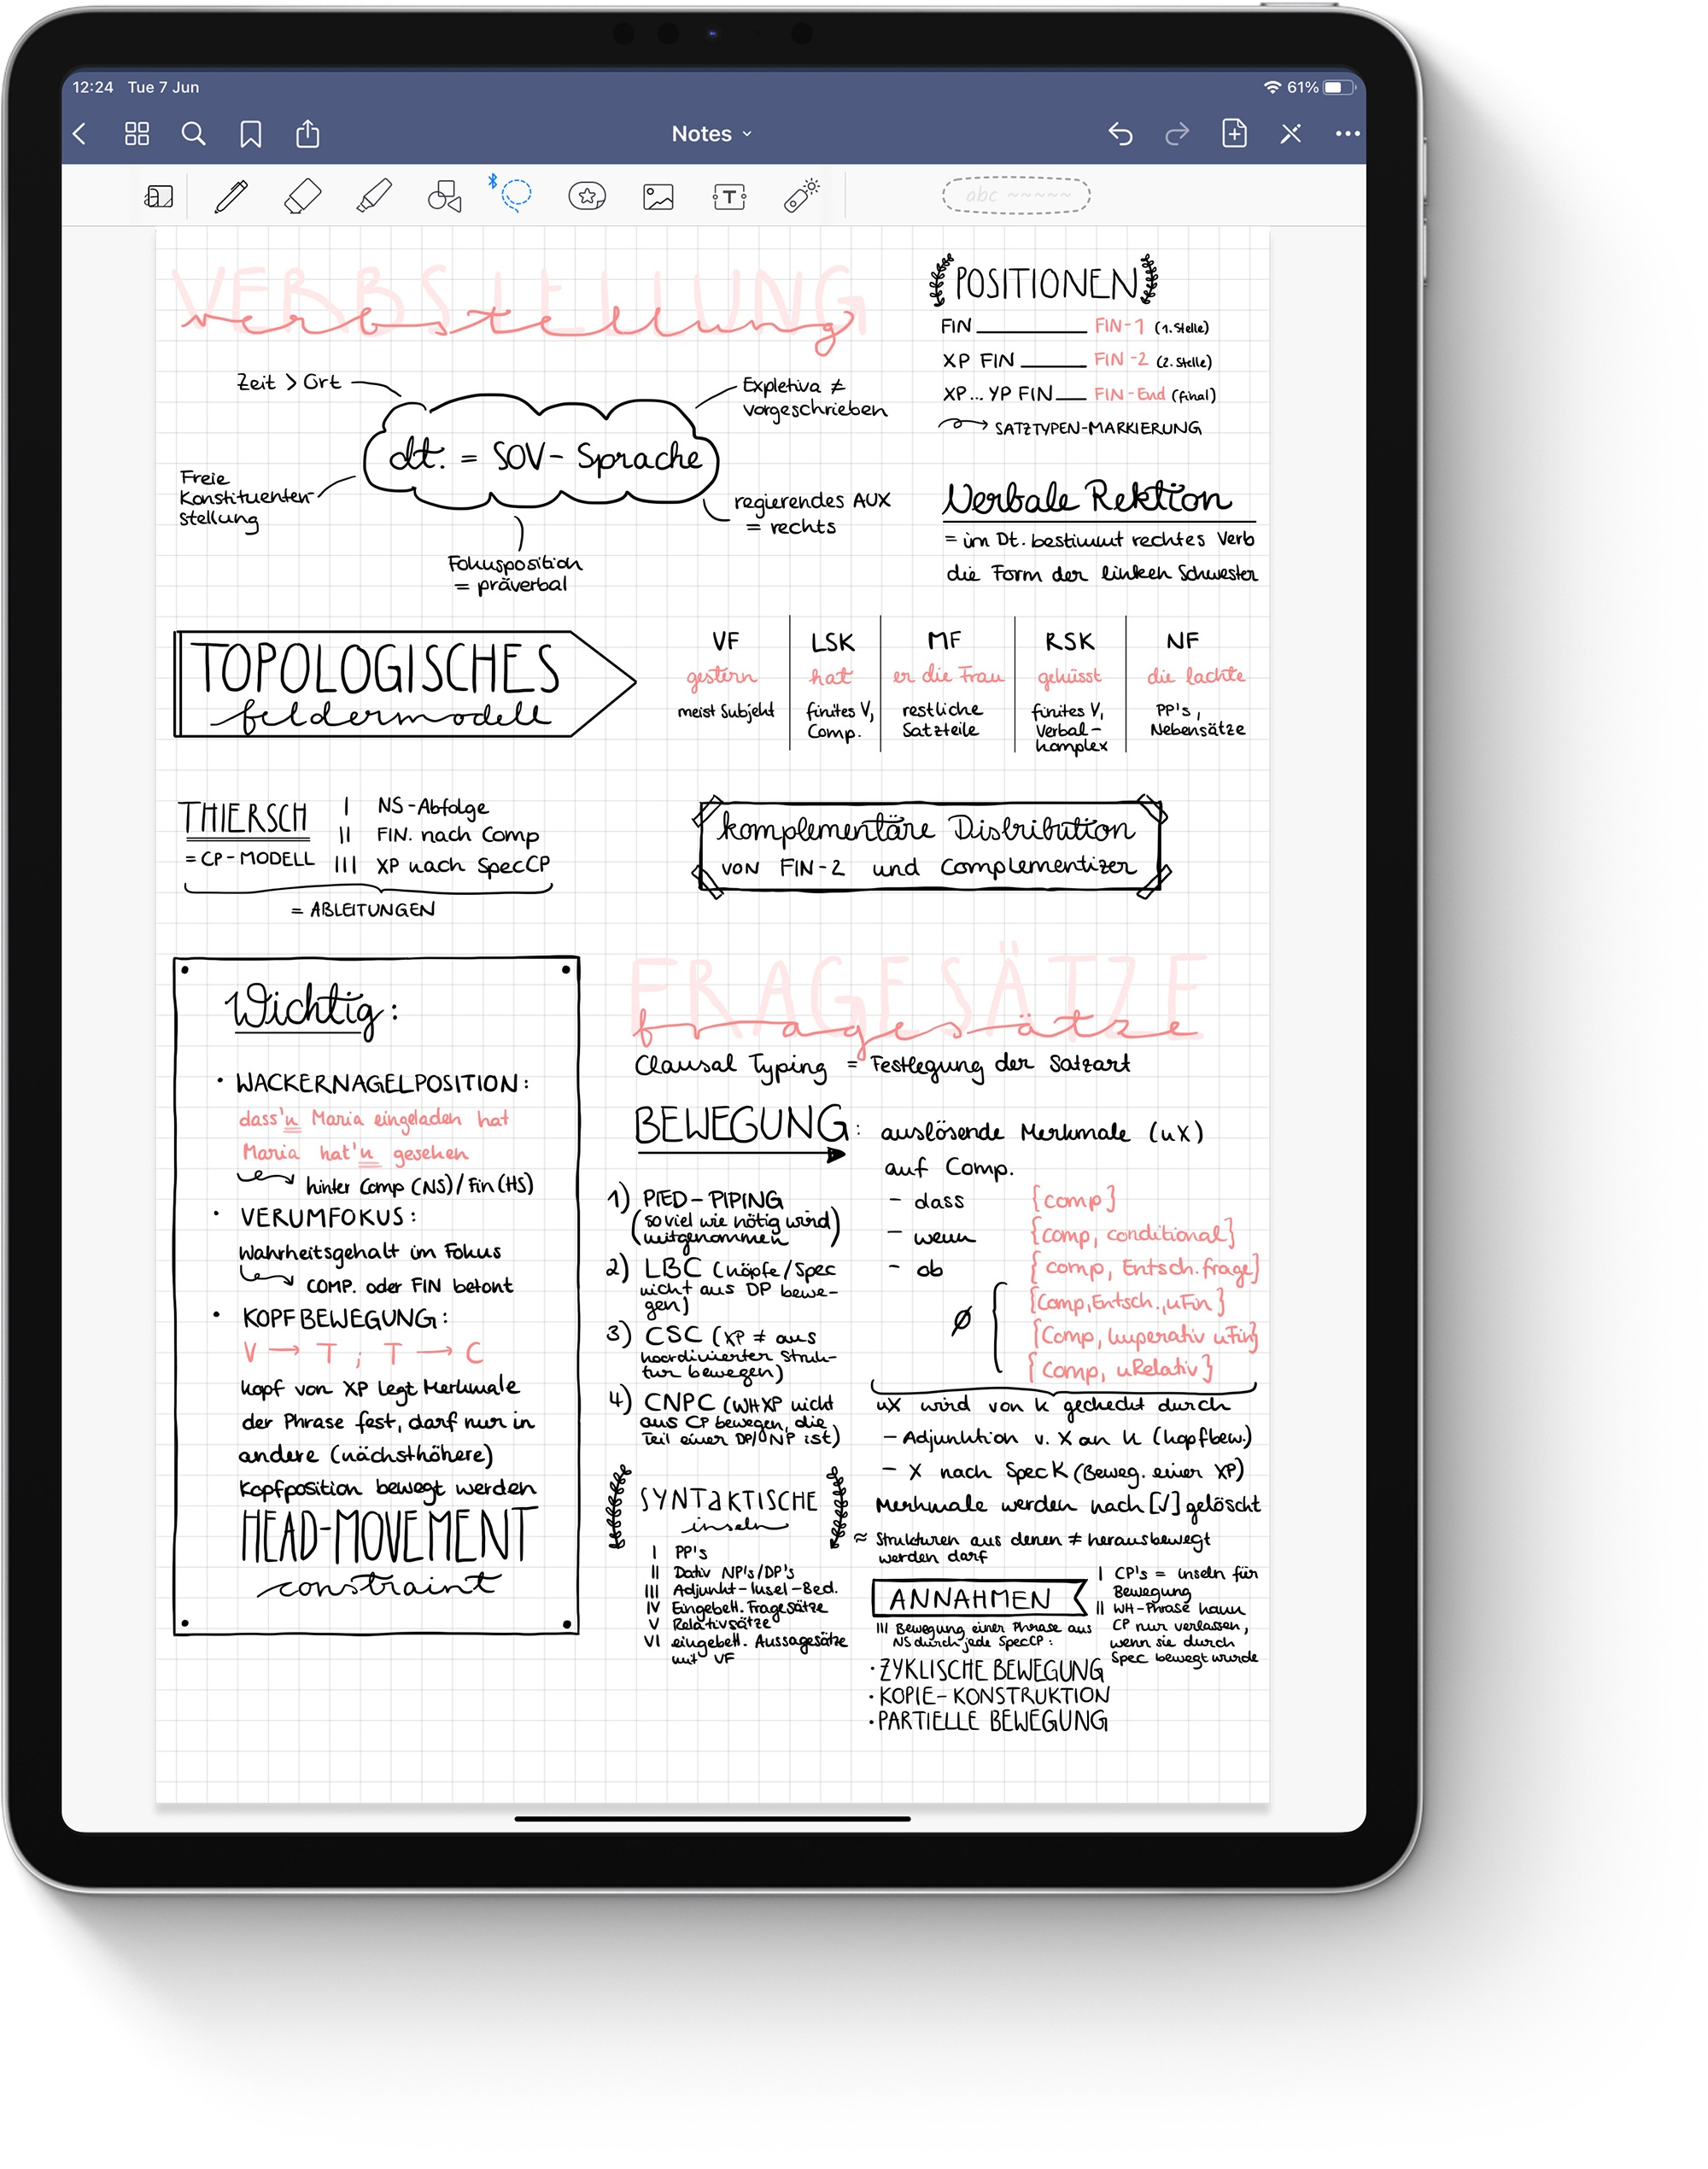 12:24 Tue 7 Jun
61%
Notes
abc
VERBSTELLUNG
verbstellung
Zeit > Ort
Expletiva ≠
vorgeschrieben
dt. = SOV- Sprache
Freie
Konstituenten-
stellung
regierendes AUX
= rechts
Fokusposition
= präverbal
POSITIONEN
FIN ________ FIN-1 (1.Stelle)
XP FIN ______ FIN-2 (2.Stelle)
XP... YP FIN ___ FIN-End (final)
SATZTYPEN-MARKIERUNG
Verbale Rektion
= im Dt. bestimmt rechtes Verb
die Form der linken Schwester
TOPOLOGISCHES
feldermodell
VF LSK MF RSK NF
gestern hat er die Frau geküsst die lachte
meist Subjekt
finites V,
Comp.
restliche
Satzteile
finites V,
Verbal-
komplex
PP's,
Nebensätze
THIERSCH
= CP-MODELL
I NS-Abfolge
II FIN. nach Comp
III XP nach SpecCP
= ABLEITUNGEN
komplementäre Distribution
von FIN-2 und Complementizer
Wichtig:
• WACKERNAGELPOSITION:
dass'n Maria eingeladen hat
Maria hat'n gesehen
hinter Comp (NS)/Fin(HS)
• VERUMFOKUS:
Wahrheitsgehalt im Fokus
COMP. oder FIN betont
• KOPFBEWEGUNG:
V → T ; T → C
Kopf von XP legt Merkmale
der Phrase fest, darf nur in
andere (nächsthöhere)
Kopfposition bewegt werden
HEAD-MOVEMENT
constraint
FRAGESÄTZE
fragesätze
Clausal Typing = Festlegung der Satzart
BEWEGUNG: auslösende Merkmale (uX)
auf Comp.
1) PIED-PIPING
(so viel wie nötig wird
mitgenommen)
2) LBC (Köpfe/Spec
nicht aus DP bewe-
gen)
3) CSC (XP ≠ aus
koordinierter Struk-
tur bewegen)
4) CNPC (WHXP nicht
aus CP bewegen, die
Teil einer DP/NP ist)
- dass {comp}
- wenn {comp, conditional}
- ob {comp, Entsch.frage}
Ø {
{Comp,Entsch.,uFin}
{Comp, Imperativ uFin}
{Comp, uRelativ}
uX wird von K gecheckt durch
- Adjunktion v. X an K (Kopfbew.)
- X nach SpecK (Beweg. einer XP)
Merkmale werden nach [√] gelöscht
SYNTAKTISCHE
inseln
≈ Strukturen aus denen ≠ herausbewegt
werden darf
I PP's
II Dativ NP's/DP's
III Adjunkt-Insel-Bed.
IV Eingebett. Fragesätze
V Relativsätze
VI eingebett. Aussagesätze
mit VF
ANNAHMEN
I CP's = inseln für
Bewegung
II WH-Phrase kann
CP nur verlassen,
wenn sie durch
Spec bewegt wurde
III Bewegung einer Phrase aus
NS durch jede SpecCP:
• ZYKLISCHE BEWEGUNG
• KOPIE-KONSTRUKTION
• PARTIELLE BEWEGUNG